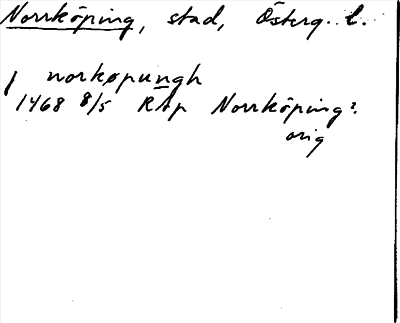 Norrköping, stad, Österg. l.
/ norkøpungh
1468 8/5 RAp Norrköping?
orig